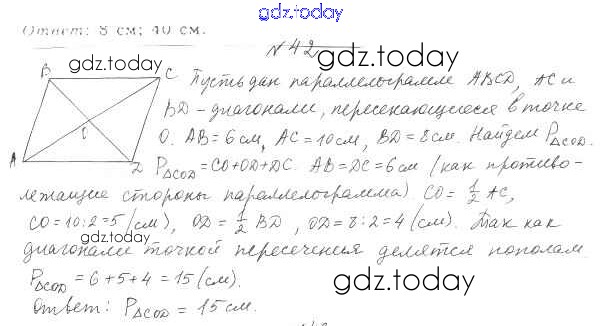 gdz.today
Ответ: 8 см; 40 см.
№42
gdz.today
gdz.today
B C
O
A D
Пусть дан параллелограмм ABCD, AC и
BD - диагонали, пересекающиеся в точке
O. AB=6см, AC=10см, BD=8см. Найдем P△COD.
P△COD=CO+OD+DC. AB=DC=6см (как противо-
лежащие стороны параллелограмма) CO=1/2 AC,
CO=10:2=5(см), OD=1/2 BD, OD=8:2=4(см). Так как
gdz.today
диагонали точкой пересечения делятся пополам
P△COD=6+5+4=15(см).
gdz.today
Ответ: P△COD=15см.